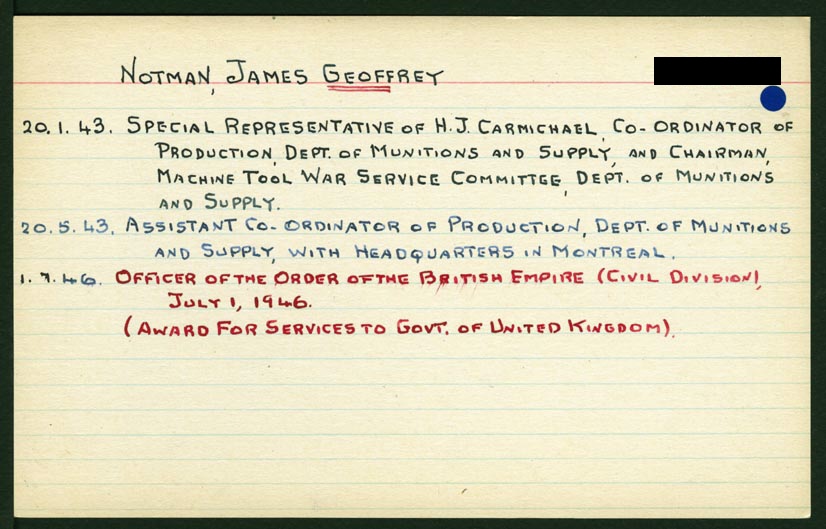 NOTMAN, JAMES GEOFFREY
20.1.43. SPECIAL REPRESENTATIVE OF H.J. CARMICHAEL, CO-ORDINATOR OF
PRODUCTION, DEPT. OF MUNITIONS AND SUPPLY, AND CHAIRMAN,
MACHINE TOOL WAR SERVICE COMMITTEE, DEPT. OF MUNITIONS
AND SUPPLY.
20.5.43. ASSISTANT CO-ORDINATOR OF PRODUCTION, DEPT. OF MUNITIONS
AND SUPPLY, WITH HEADQUARTERS IN MONTREAL.
1.7.46. OFFICER OF THE ORDER OF THE BRITISH EMPIRE (CIVIL DIVISION),
JULY 1, 1946.
(AWARD FOR SERVICES TO GOVT. OF UNITED KINGDOM).